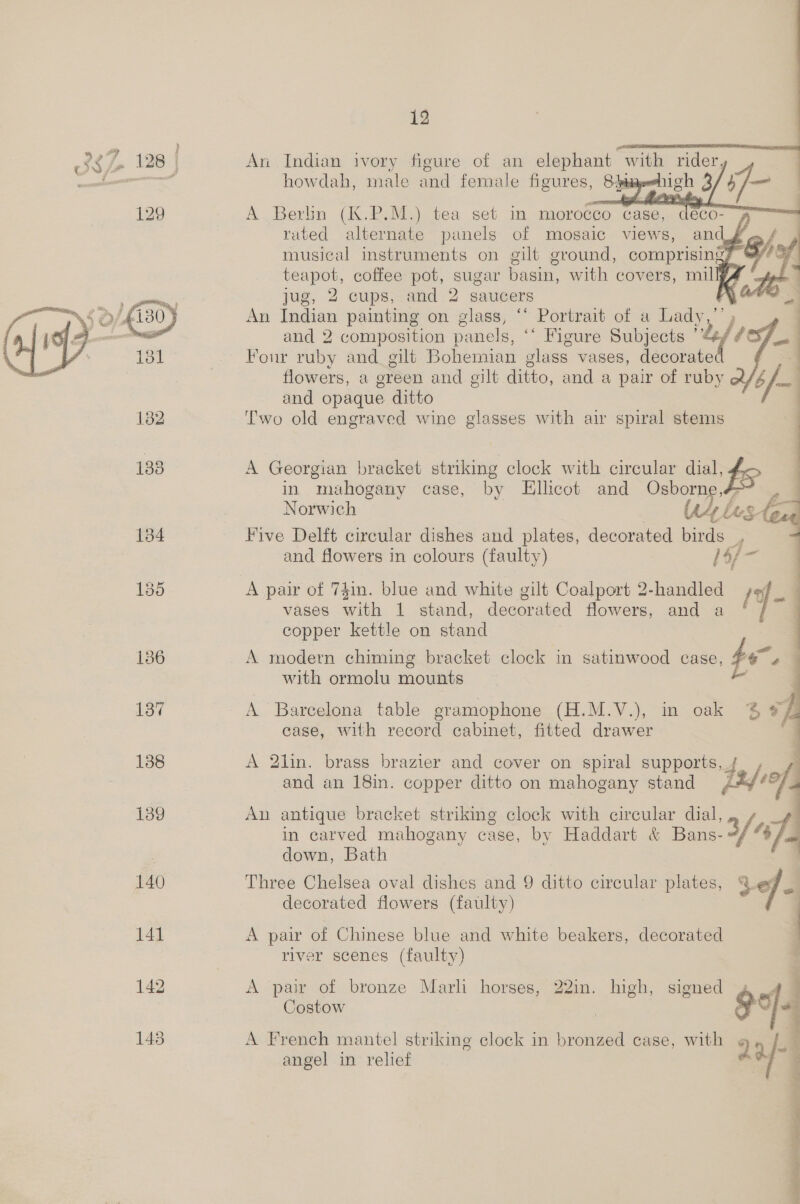 12
128 An Indian ivory figure of an elephant with rider,
howdah, male and female figures, high
129 A Berlin (K.P.M.) tea set in morocco case, deco-
rated alternate panels of mosaic views, and
musical instruments on gilt ground, comprising
teapot, coffee pot, sugar basin, with covers, milk
jug, 2 cups, and 2 saucers
130 An Indian painting on glass, “ Portrait of a Lady,”
and 2 composition panels, “ Figure Subjects ”
131 Four ruby and gilt Bohemian glass vases, decorated
flowers, a green and gilt ditto, and a pair of ruby
and opaque ditto
132 Two old engraved wine glasses with air spiral stems
133 A Georgian bracket striking clock with circular dial,
in mahogany case, by Ellicot and Osborne,
Norwich
134 Five Delft circular dishes and plates, decorated birds
and flowers in colours (faulty)
135 A pair of 7½in. blue and white gilt Coalport 2-handled
vases with 1 stand, decorated flowers, and a
copper kettle on stand
136 A modern chiming bracket clock in satinwood case,
with ormolu mounts
137 A Barcelona table gramophone (H.M.V.), in oak
case, with record cabinet, fitted drawer
138 A 21in. brass brazier and cover on spiral supports,
and an 18in. copper ditto on mahogany stand
139 An antique bracket striking clock with circular dial,
in carved mahogany case, by Haddart & Bans-
down, Bath
140 Three Chelsea oval dishes and 9 ditto circular plates,
decorated flowers (faulty)
141 A pair of Chinese blue and white beakers, decorated
river scenes (faulty)
142 A pair of bronze Marli horses, 22in. high, signed
Costow
143 A French mantel striking clock in bronzed case, with
angel in relief